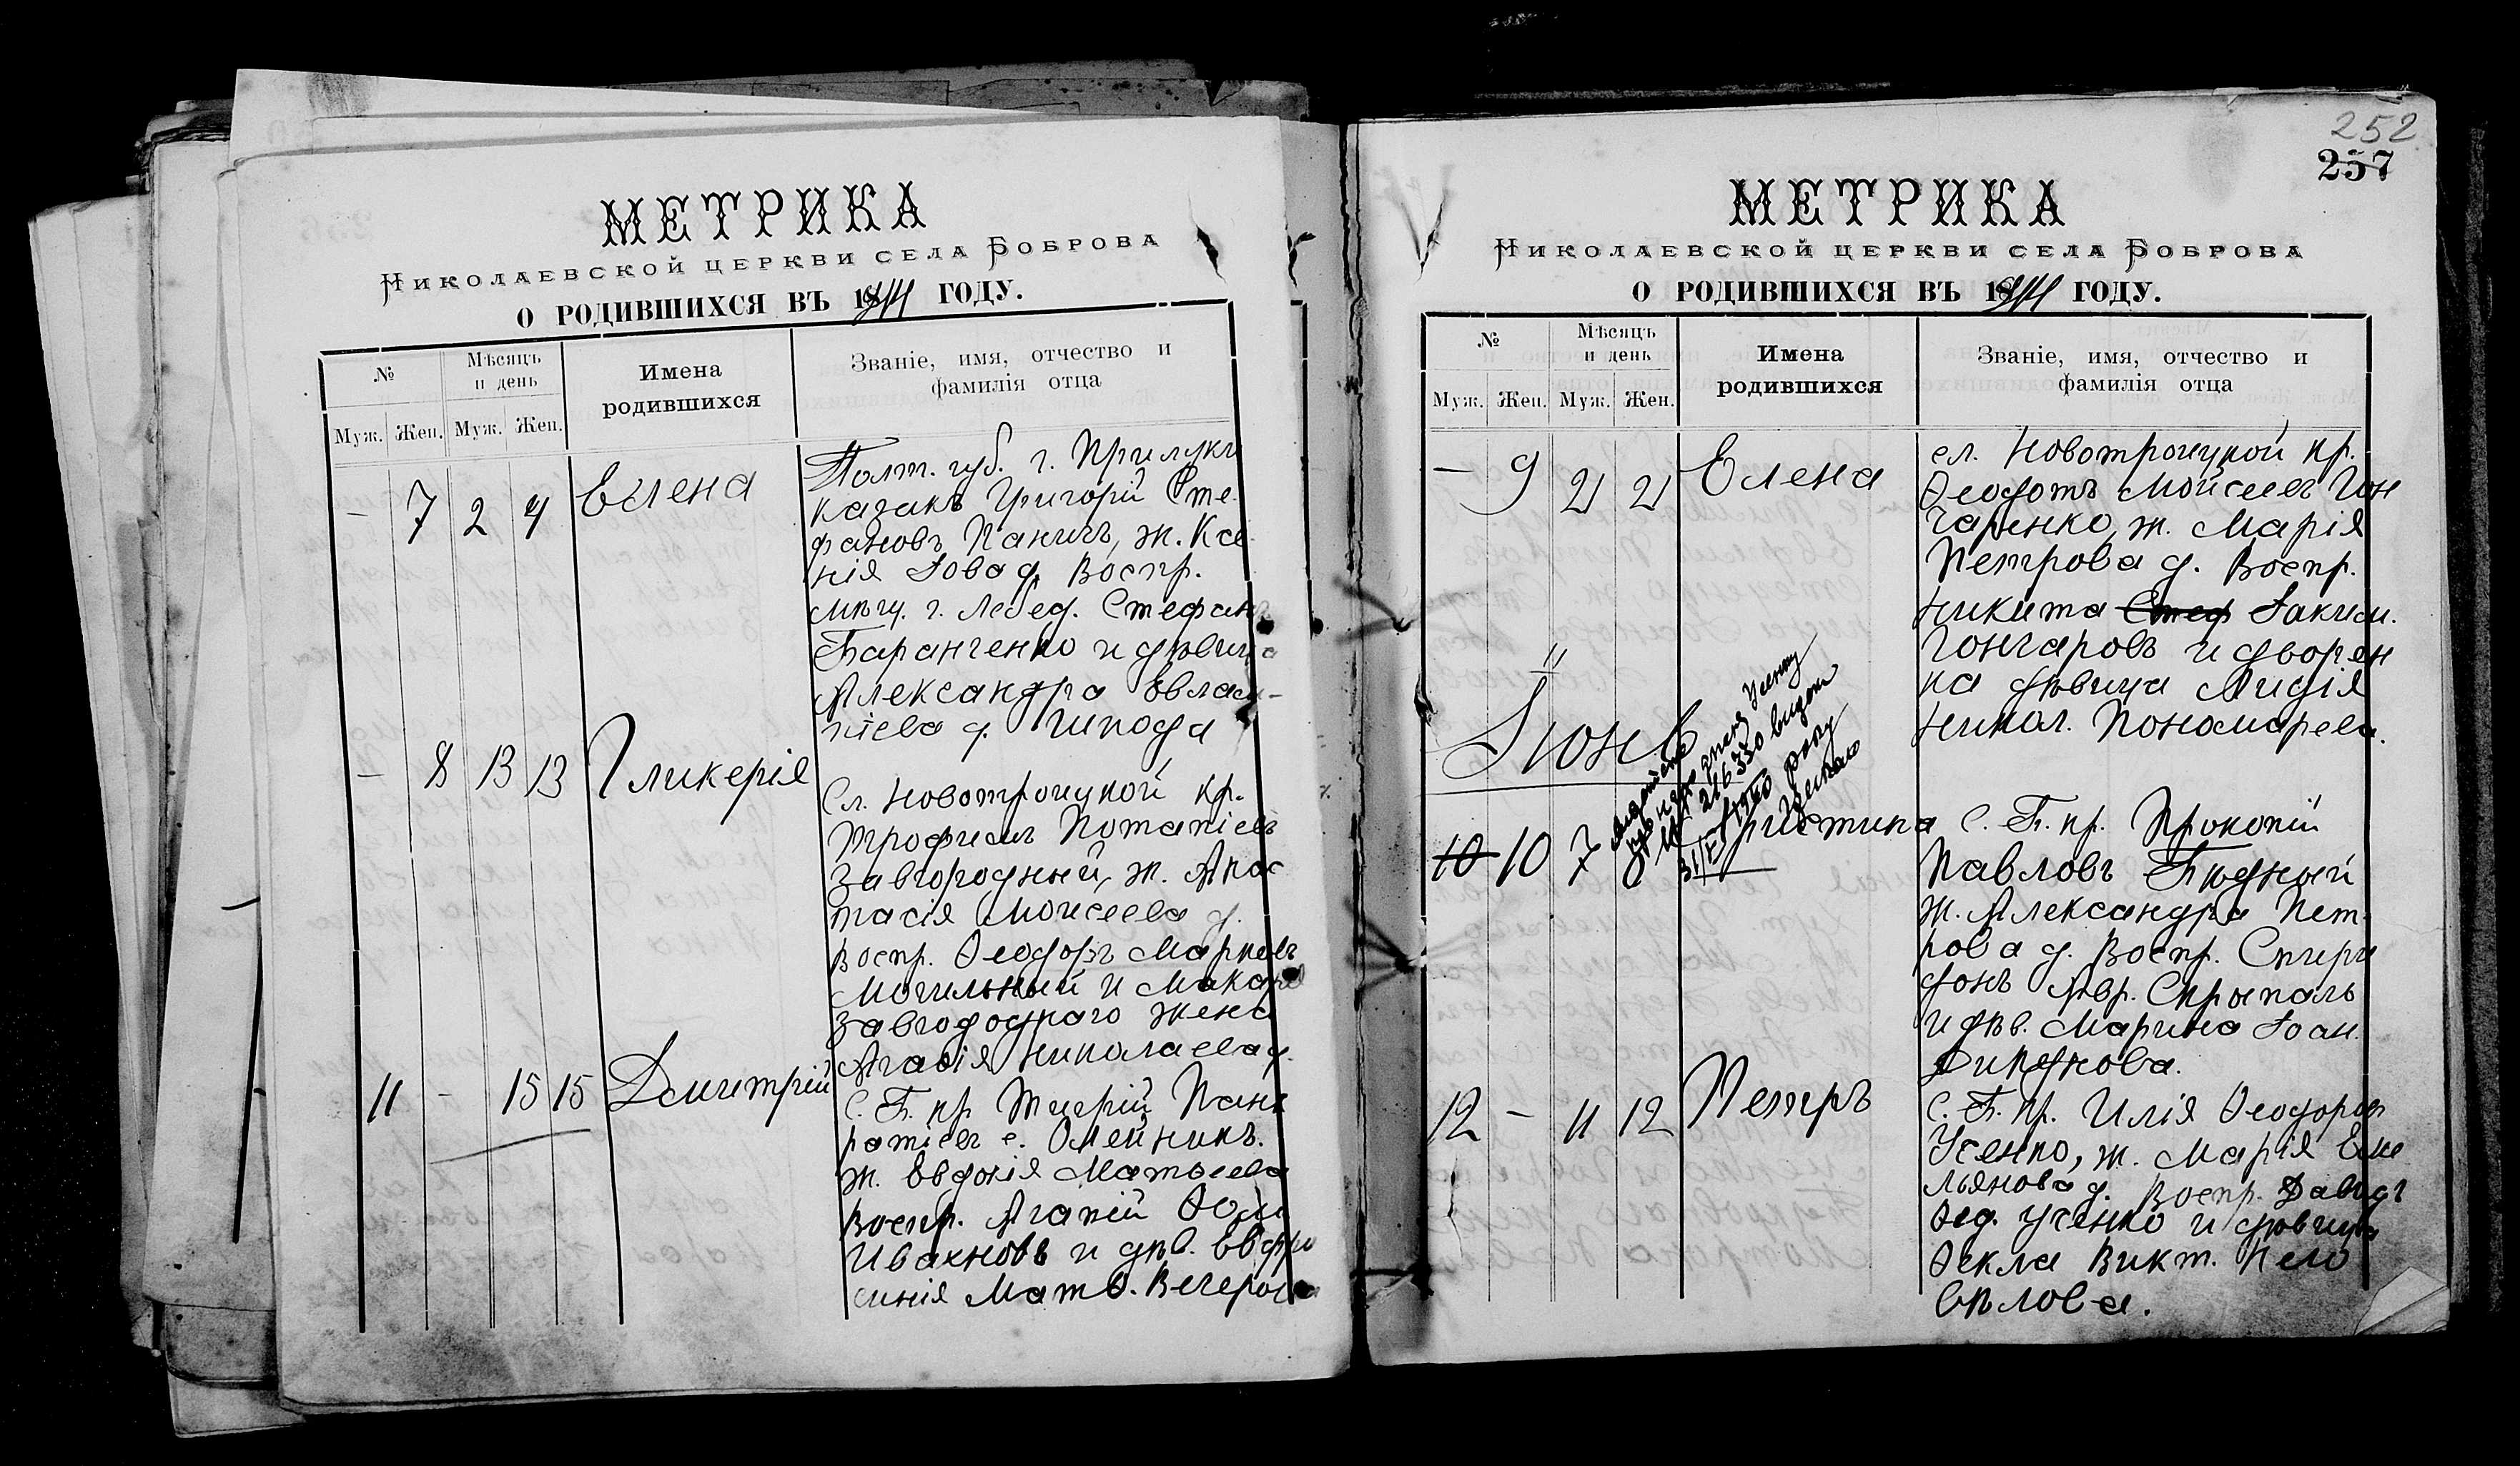 МЕТРИКА
НИКОЛАЕВСКОЙ ЦЕРКВИ СЕЛА БОБРОВА
О РОДИВШИХСЯ ВЪ 1911 ГОДУ.
№
Мѣсяцъ и день
Имена родившихся
Званіе, имя, отчество и фамилія отца
Муж. Жен. Муж. Жен.
— 7 2 4 Елена
Полт. губ. г. Прилуки
казакъ Григорій Сте-
фановъ Паничъ, ж. Ксе-
нія Іова д. Воспр.
мѣщ. г. Лебед. Стефанъ
Баранченко и дѣвица
Александра Евлам-
піева д. Шкода
— 8 13 13 Гликерія
Сл. Новотроицкой кр.
Трофимъ Потапіевъ
Завгородный, ж. Анас
тасія Моисеева д.
Воспр. Ѳеодоръ Марковъ
Могильный и Макарія
Завгороднаго жена
Агафія Николаева д.
11 - 15 15 Димитрій
С. Б. кр. Тигрій Панк
ратіевъ с. Олейникъ.
ж. Евдокія Матѳеева
Воспр. Агапій Ѳом.
Ивахновъ и дѣв. Евфро
синія Матѳ. Вечерова
252
257
МЕТРИКА
НИКОЛАЕВСКОЙ ЦЕРКВИ СЕЛА БОБРОВА
О РОДИВШИХСЯ ВЪ 1911 ГОДУ.
№
Мѣсяцъ и день
Имена родившихся
Званіе, имя, отчество и фамилія отца
Муж. Жен. Муж. Жен.
— 9 21 21 Елена
сл. Новотроицкой кр.
Ѳеодотъ Мойсеевъ Гон
чаренко, ж. Марія
Петрова д. Воспр.
Никита Стеф Іаким.
Гончаровъ и дворян
ка дѣвица Лидія
Никол. Пономарева.
Іюнь
№ 216330 видан
31/ 1950 року
10 10 7 8 Христина
С. Б. кр. Прокопій
Павловъ Бидный
ж. Александра Пет-
рова д. Воспр. Спири
донъ Авр. Скрыпаль
и дѣв. Марина Іоан.
Дикунова.
12 — 11 12 Петръ
С. Б. кр. Илія Ѳеодоров
Усенко, ж. Марія Еме
льянова д. Воспр. Давидъ
Ѳед. Усенко и дѣвица
Ѳекла Викт. Пело
вѣлова.